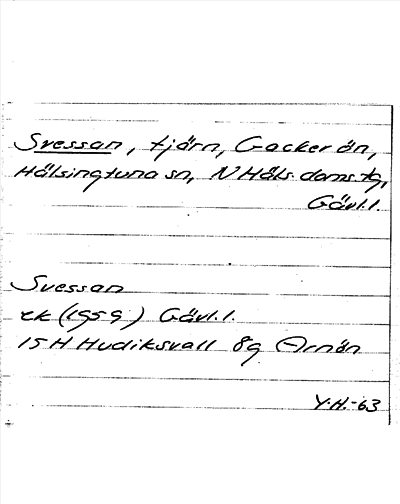 Svessan, tjärn, Gackerön,
Hälsingtuna sn, N Häls. doms. tg,
Gävl.l.
Svessan
ek (1959) Gävl.l.
15H Hudiksvall 8g Arnön
Y.H.-63